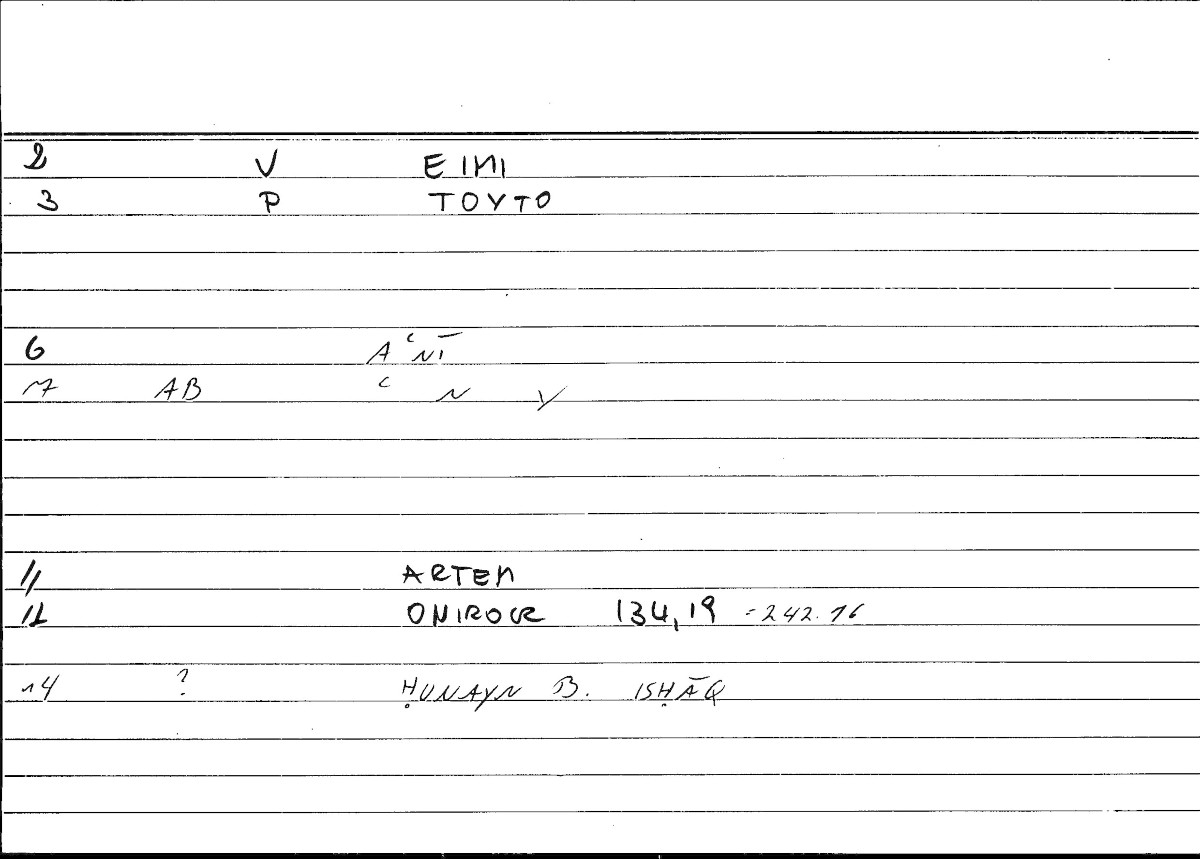 2 V EIMI
3 P TOYTO
6 AʿNĪ
7 AB ʿ N Y
11 ARTEM
12 ONIROCR 134,19 = 242.16
14 ? ḤUNAYN B. ISḤĀQ